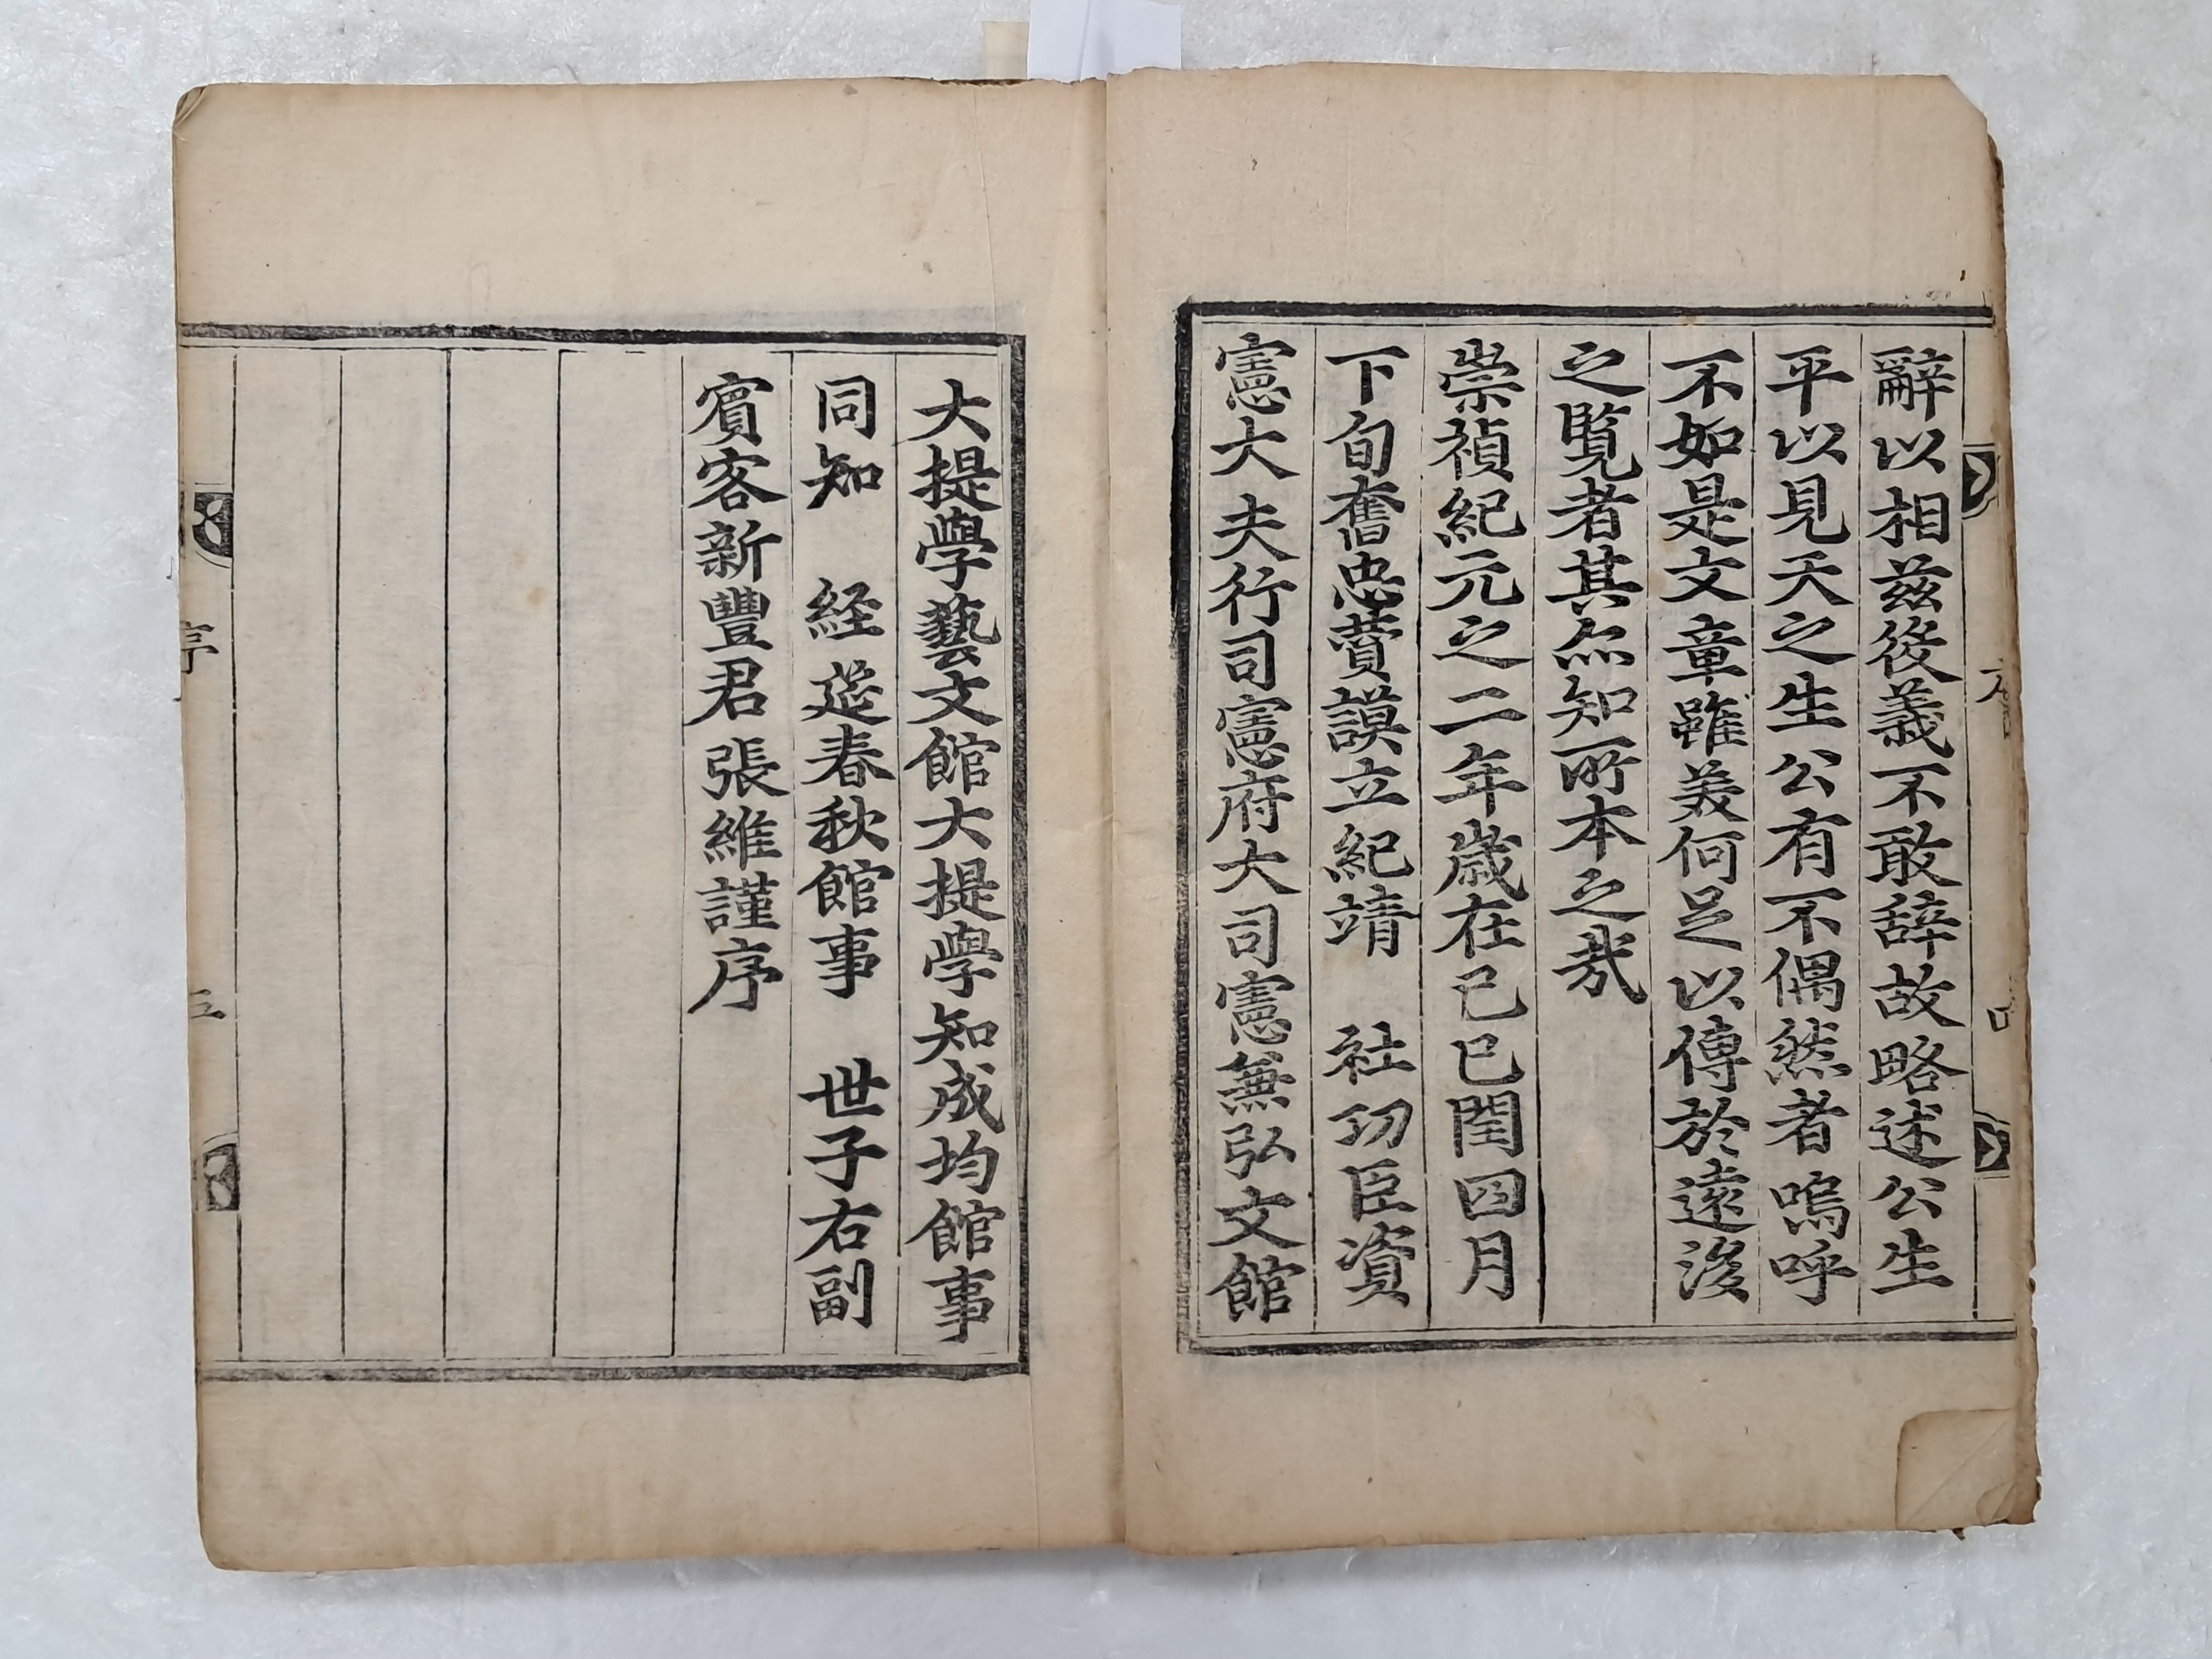 辭以相茲後義不敢辞故略述公生
平以見天之生公有不偶然者嗚呼
不如是文章雖美何足以傳於遠後
之覧者其尓知所本之㦲
崇禎紀元之二年歲在己巳閏四月
下旬奮忠賛謨立紀靖 社功臣資
憲大夫行司憲府大司憲兼弘文館
大提學藝文館大提學知成均館事
同知 経筵春秋館事 世子右副
賓客新豐君張維謹序
序
五